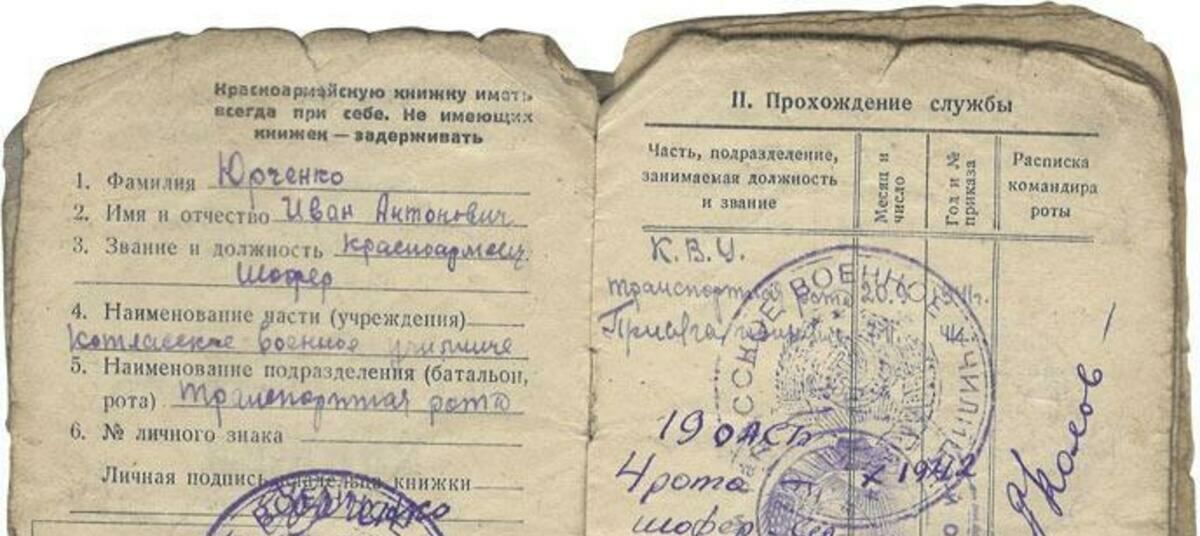 Красноармейскую книжку иметь
всегда при себе. Не имеющих
книжек — задерживать
1. Фамилия Юрченко
2. Имя и отчество Иван Антонович
3. Звание и должность Красноармеец
Шофер
4. Наименование части (учреждения)
Котласское военное училище
5. Наименование подразделения (батальон,
рота) Транспортная рота
6. № личного знака
Личная подпись владельца книжки
Юрченко
II. Прохождение службы
Часть, подразделение,
занимаемая должность
и звание
Месяц и
число
Год и №
приказа
Расписка
командира
роты
К.В.У.
транспортная рота 20.9
Присяга
19 оАСБ
4 рота X 1942
шофер
ВОЕННОЕ УЧИЛИЩЕ